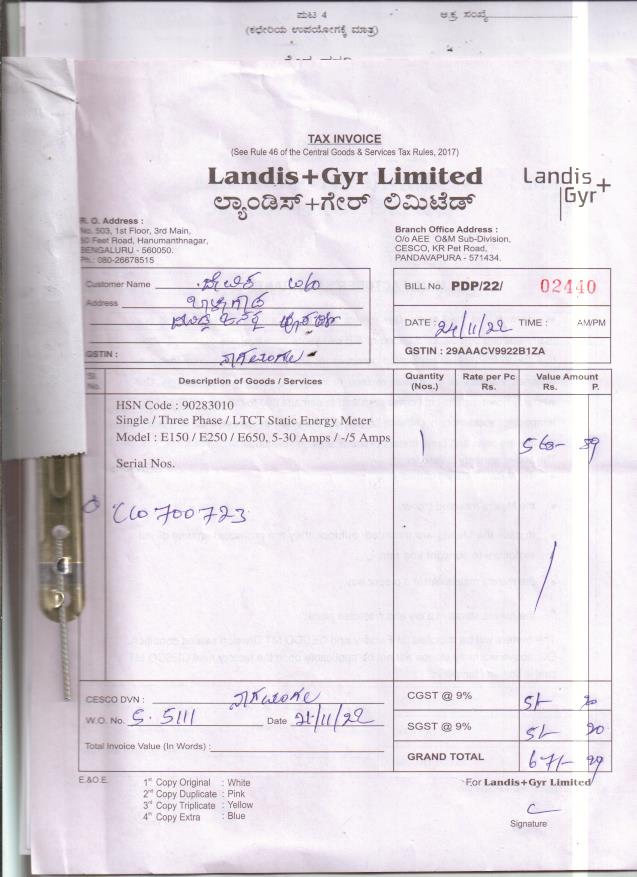 ಪುಟ 4
ಅ.ಕ್ರ. ಸಂಖ್ಯೆ
(ಕಛೇರಿಯ ಉಪಯೋಗಕ್ಕೆ ಮಾತ್ರ)
TAX INVOICE
(See Rule 46 of the Central Goods & Services Tax Rules, 2017)
Landis+Gyr Limited
ಲ್ಯಾಂಡಿಸ್+ಗೇರ್ ಲಿಮಿಟೆಡ್
Landis
Gyr+
R. O. Address :
No. 503, 1st Floor, 3rd Main,
Feet Road, Hanumanthnagar,
BENGALURU - 560050.
Ph.: 080-26678515
Branch Office Address :
O/o AEE O&M Sub-Division,
CESCO, KR Pet Road,
PANDAVAPURA - 571434.
Customer Name
Address
GSTIN : ನಾಗಮಂಗಲ
BILL No. PDP/22/ 02440
DATE : 24/11/22 TIME : AM/PM
GSTIN : 29AAACV9922B1ZA
Sl. No. Description of Goods / Services Quantity (Nos.) Rate per Pc Rs. Value Amount Rs. P.
HSN Code : 90283010
Single / Three Phase / LTCT Static Energy Meter
Model : E150 / E250 / E650, 5-30 Amps / -/5 Amps 1
Serial Nos.
CESCO DVN : ನಾಗಮಂಗಲ
W.O. No. S. 5111 Date 21/11/22
Total Invoice Value (In Words) :
CGST @ 9%
SGST @ 9%
GRAND TOTAL
E.&O.E.
1st Copy Original : White
2nd Copy Duplicate : Pink
3rd Copy Triplicate : Yellow
4th Copy Extra : Blue
For Landis+Gyr Limited
Signature